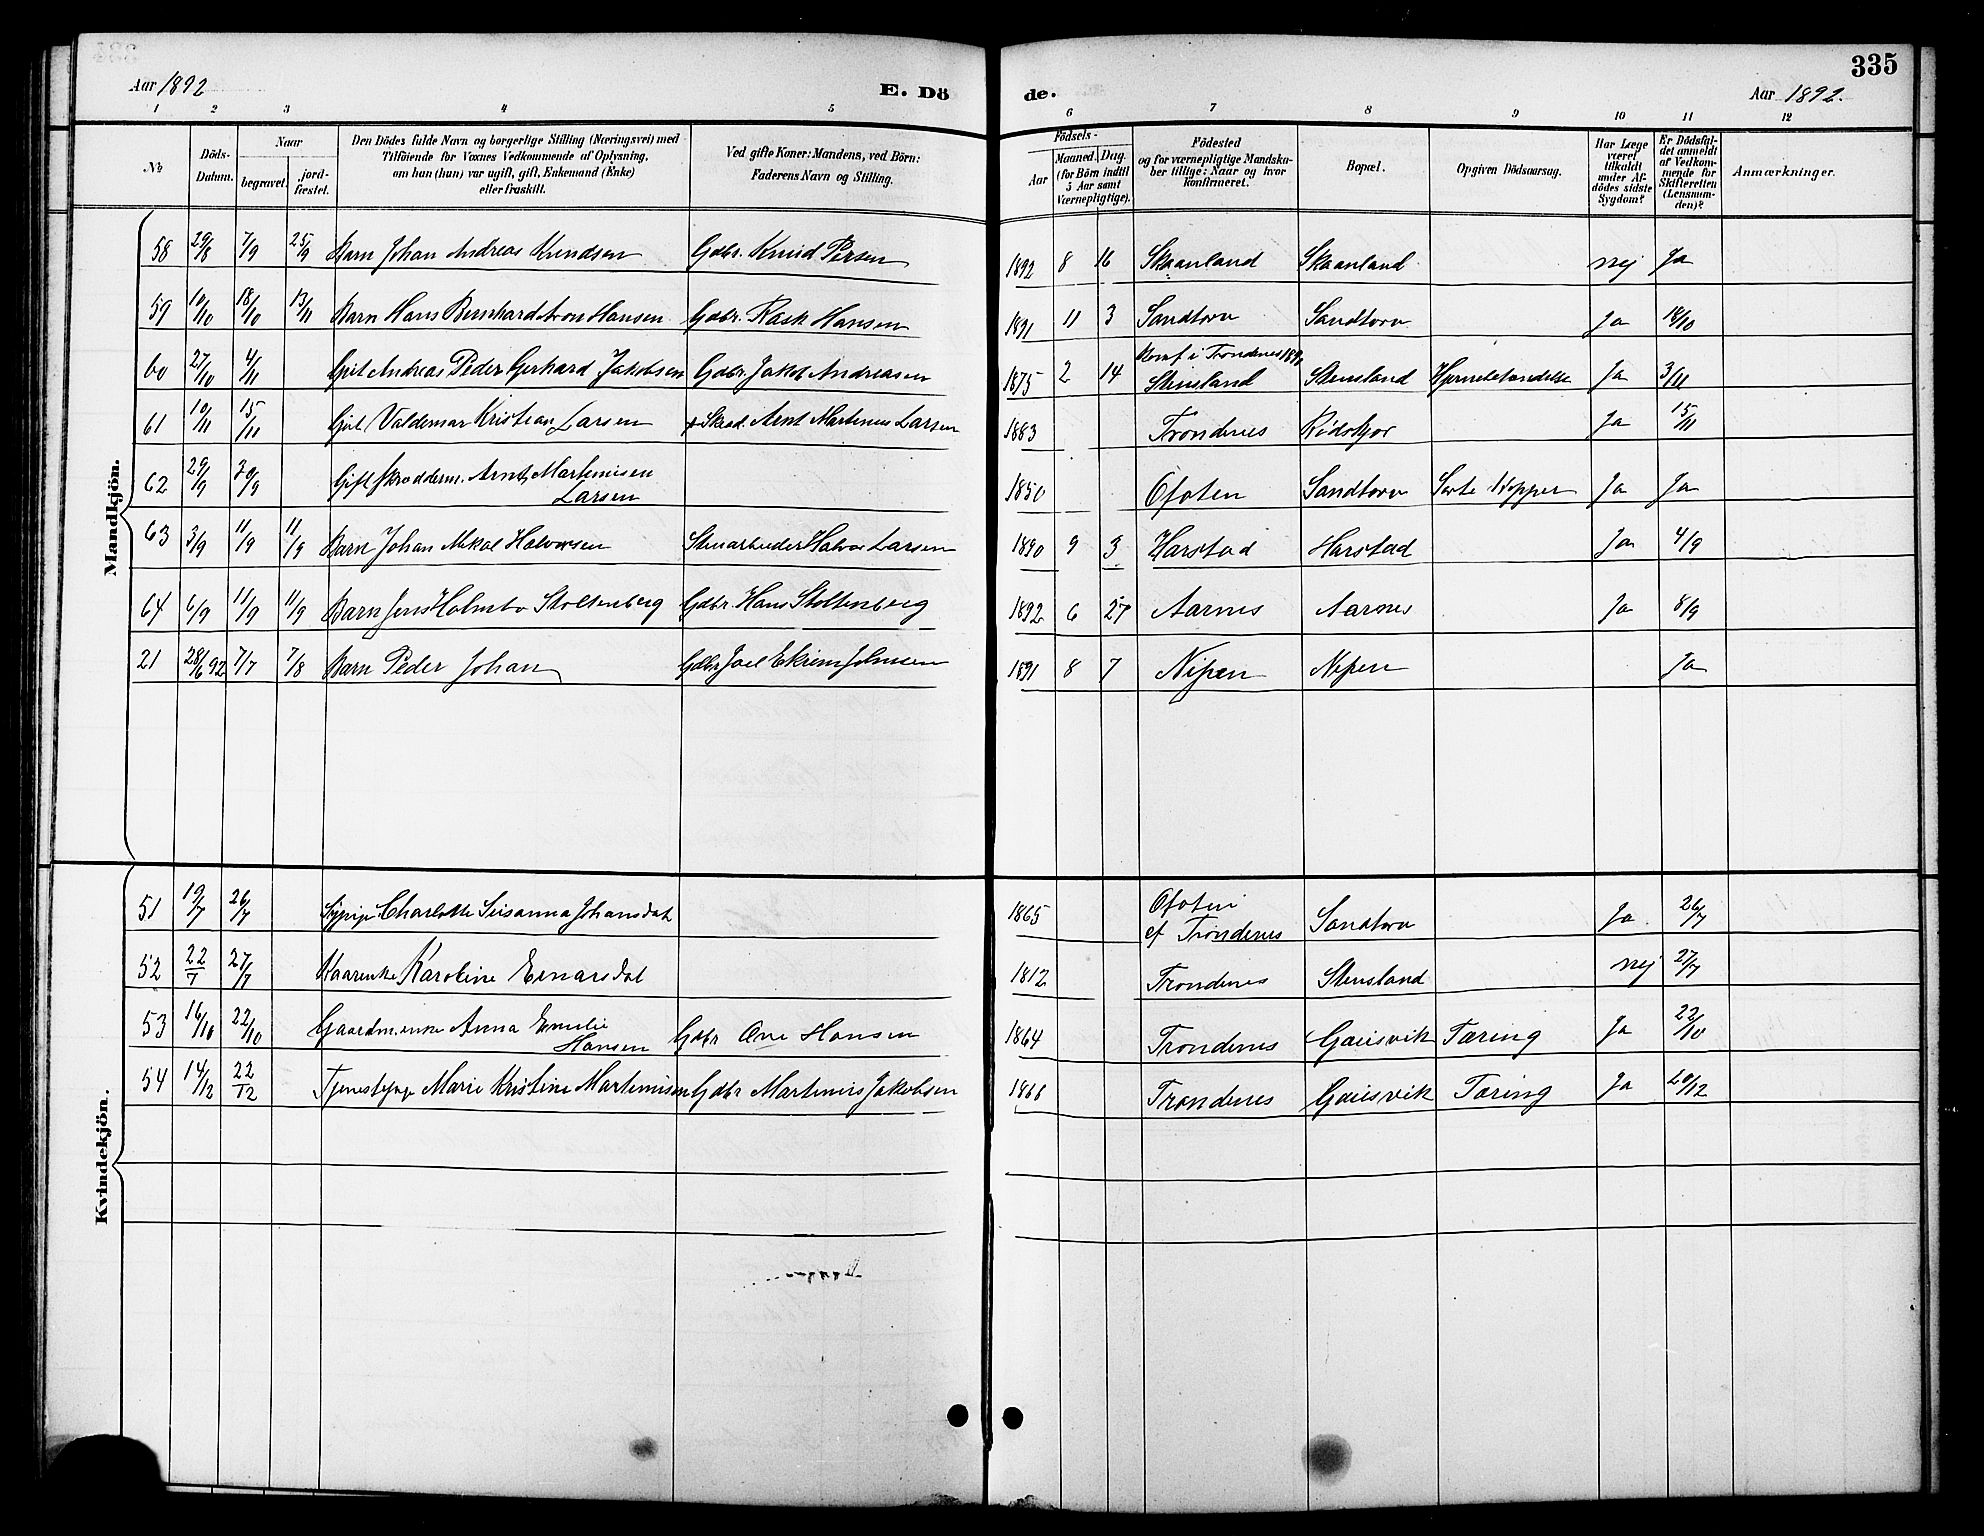 335
Aar 1892
E. Dö
de.
Aar 1892.
1 2 3 4 5
6 7 8 9 10 11 12
No
Döds-Datum.
Naar
begravet.
jord-fæstet.
Den Dödes fulde Navn og borgerlige Stilling (Næringsvei) med
Tilföiende for Voxnes Vedkommende af Oplysning,
om han (hun) var ugift, gift, Enkemand (Enke)
eller fraskilt.
Ved gifte Koner: Mandens, ved Börn:
Faderens Navn og Stilling.
Födsels-
Aar
Maaned. Dag.
(for Börn indtil
5 Aar samt
Værnepligtige).
Födested
og for værnepligtige Mandska-
ber tillige: Naar og hvor
konfirmeret.
Bopæl.
Opgiven Dödsaarsag.
Har Læge
været
tilkaldt
under Af-
dödes sidste
Sygdom?
Er Dödsfal-
det anmeldt
af Vedkom-
mende for
Skifteretten
(Lensman-
den)?
Anmærkninger.
Mandkjön.
58 29/8 7/9 25/9 Barn Johan Andreas Knudsen Gdbr. Knud Persen 1892 8 16 Skaanland Skaanland nej Ja
59 10/10 18/10 13/11 Barn Hans Bernhard Aron Hansen Gdbr. Rask Hansen 1891 11 3 Sandtorv Sandtorv Ja 18/10
60 27/10 4/11 Andreas Peder Gerhard Jakobsen Gdbr. Jakob Andreasen 1875 2 14 Konf i Trondenes Stensland Stensland Hjernebetændelse Ja 3/11
61 10/11 15/11 Valdemar Kristian Larsen Skræd. Arnt Martinus Larsen 1883 Trondenes Rödskjær Ja 15/11
62 29/9 30/9 Gift skrædderm. Arnt Martinusen
Larsen 1850 Ofoten Sandtorv Sorte Kopper Ja Ja
63 3/9 11/9 11/9 Barn Johan Mikal Halvorsen Stenarbeider Halvor Larsen 1890 9 3 Harstad Harstad Ja 4/9
64 6/9 11/9 11/9 Barn Jens Holmbo Stoltenberg Gdbr. Hans Stoltenberg 1892 6 27 Aarnes Aarnes Ja 8/9
21 28/6 92 7/7 7/8 Barn Peder Johan Gdbr Joel Ekrem Johnsen 1891 8 7 Nipen Nipen Ja
Kvindekjön.
51 19/7 26/7 Sypige Charlotte Susanna Johansdat 1865 Ofoten
cf Trondenes Sandtorv Ja 26/7
52 22/7 27/7 Kaarenke Karoline Einarsdat 1812 Trondenes Stensland nej 27/7
53 16/10 22/10 Gaardm.enke Anna Emilie
Hansen Gdbr Ove Hansen 1864 Trondenes Gausvik Tæring Ja 22/10
54 14/12 22/12 Tjenestepige Marie Kristine Martinusen Gdbr Martinus Jakobsen 1868 Trondenes Gausvik Tæring Ja 20/12